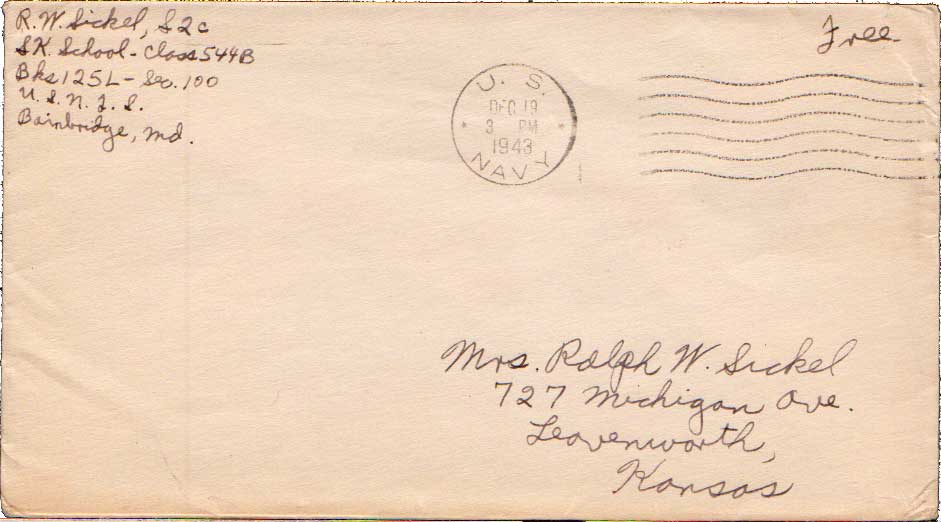 R. W. Sickel, S2c
SK. School - Class 544B
Bks 125L - Sec. 100
U. S. N. T. S.
Bainbridge, Md.
Free
U. S.
DEC 19
3 PM
1943
NAVY
Mrs. Ralph W. Sickel
727 Michigan Ave.
Leavenworth,
Kansas